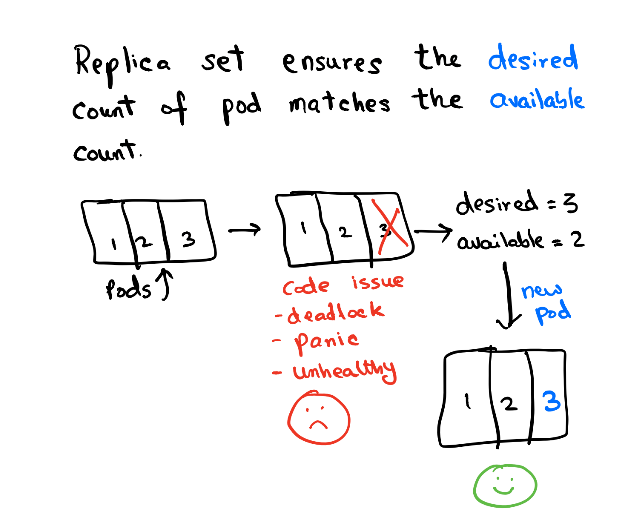 Replica set ensures the desired
count of pod matches the available
count.
1 2 3
Pods
1 2 3
code issue
- deadlock
- panic
- unhealthy
desired = 3
available = 2
new
pod
1 2 3